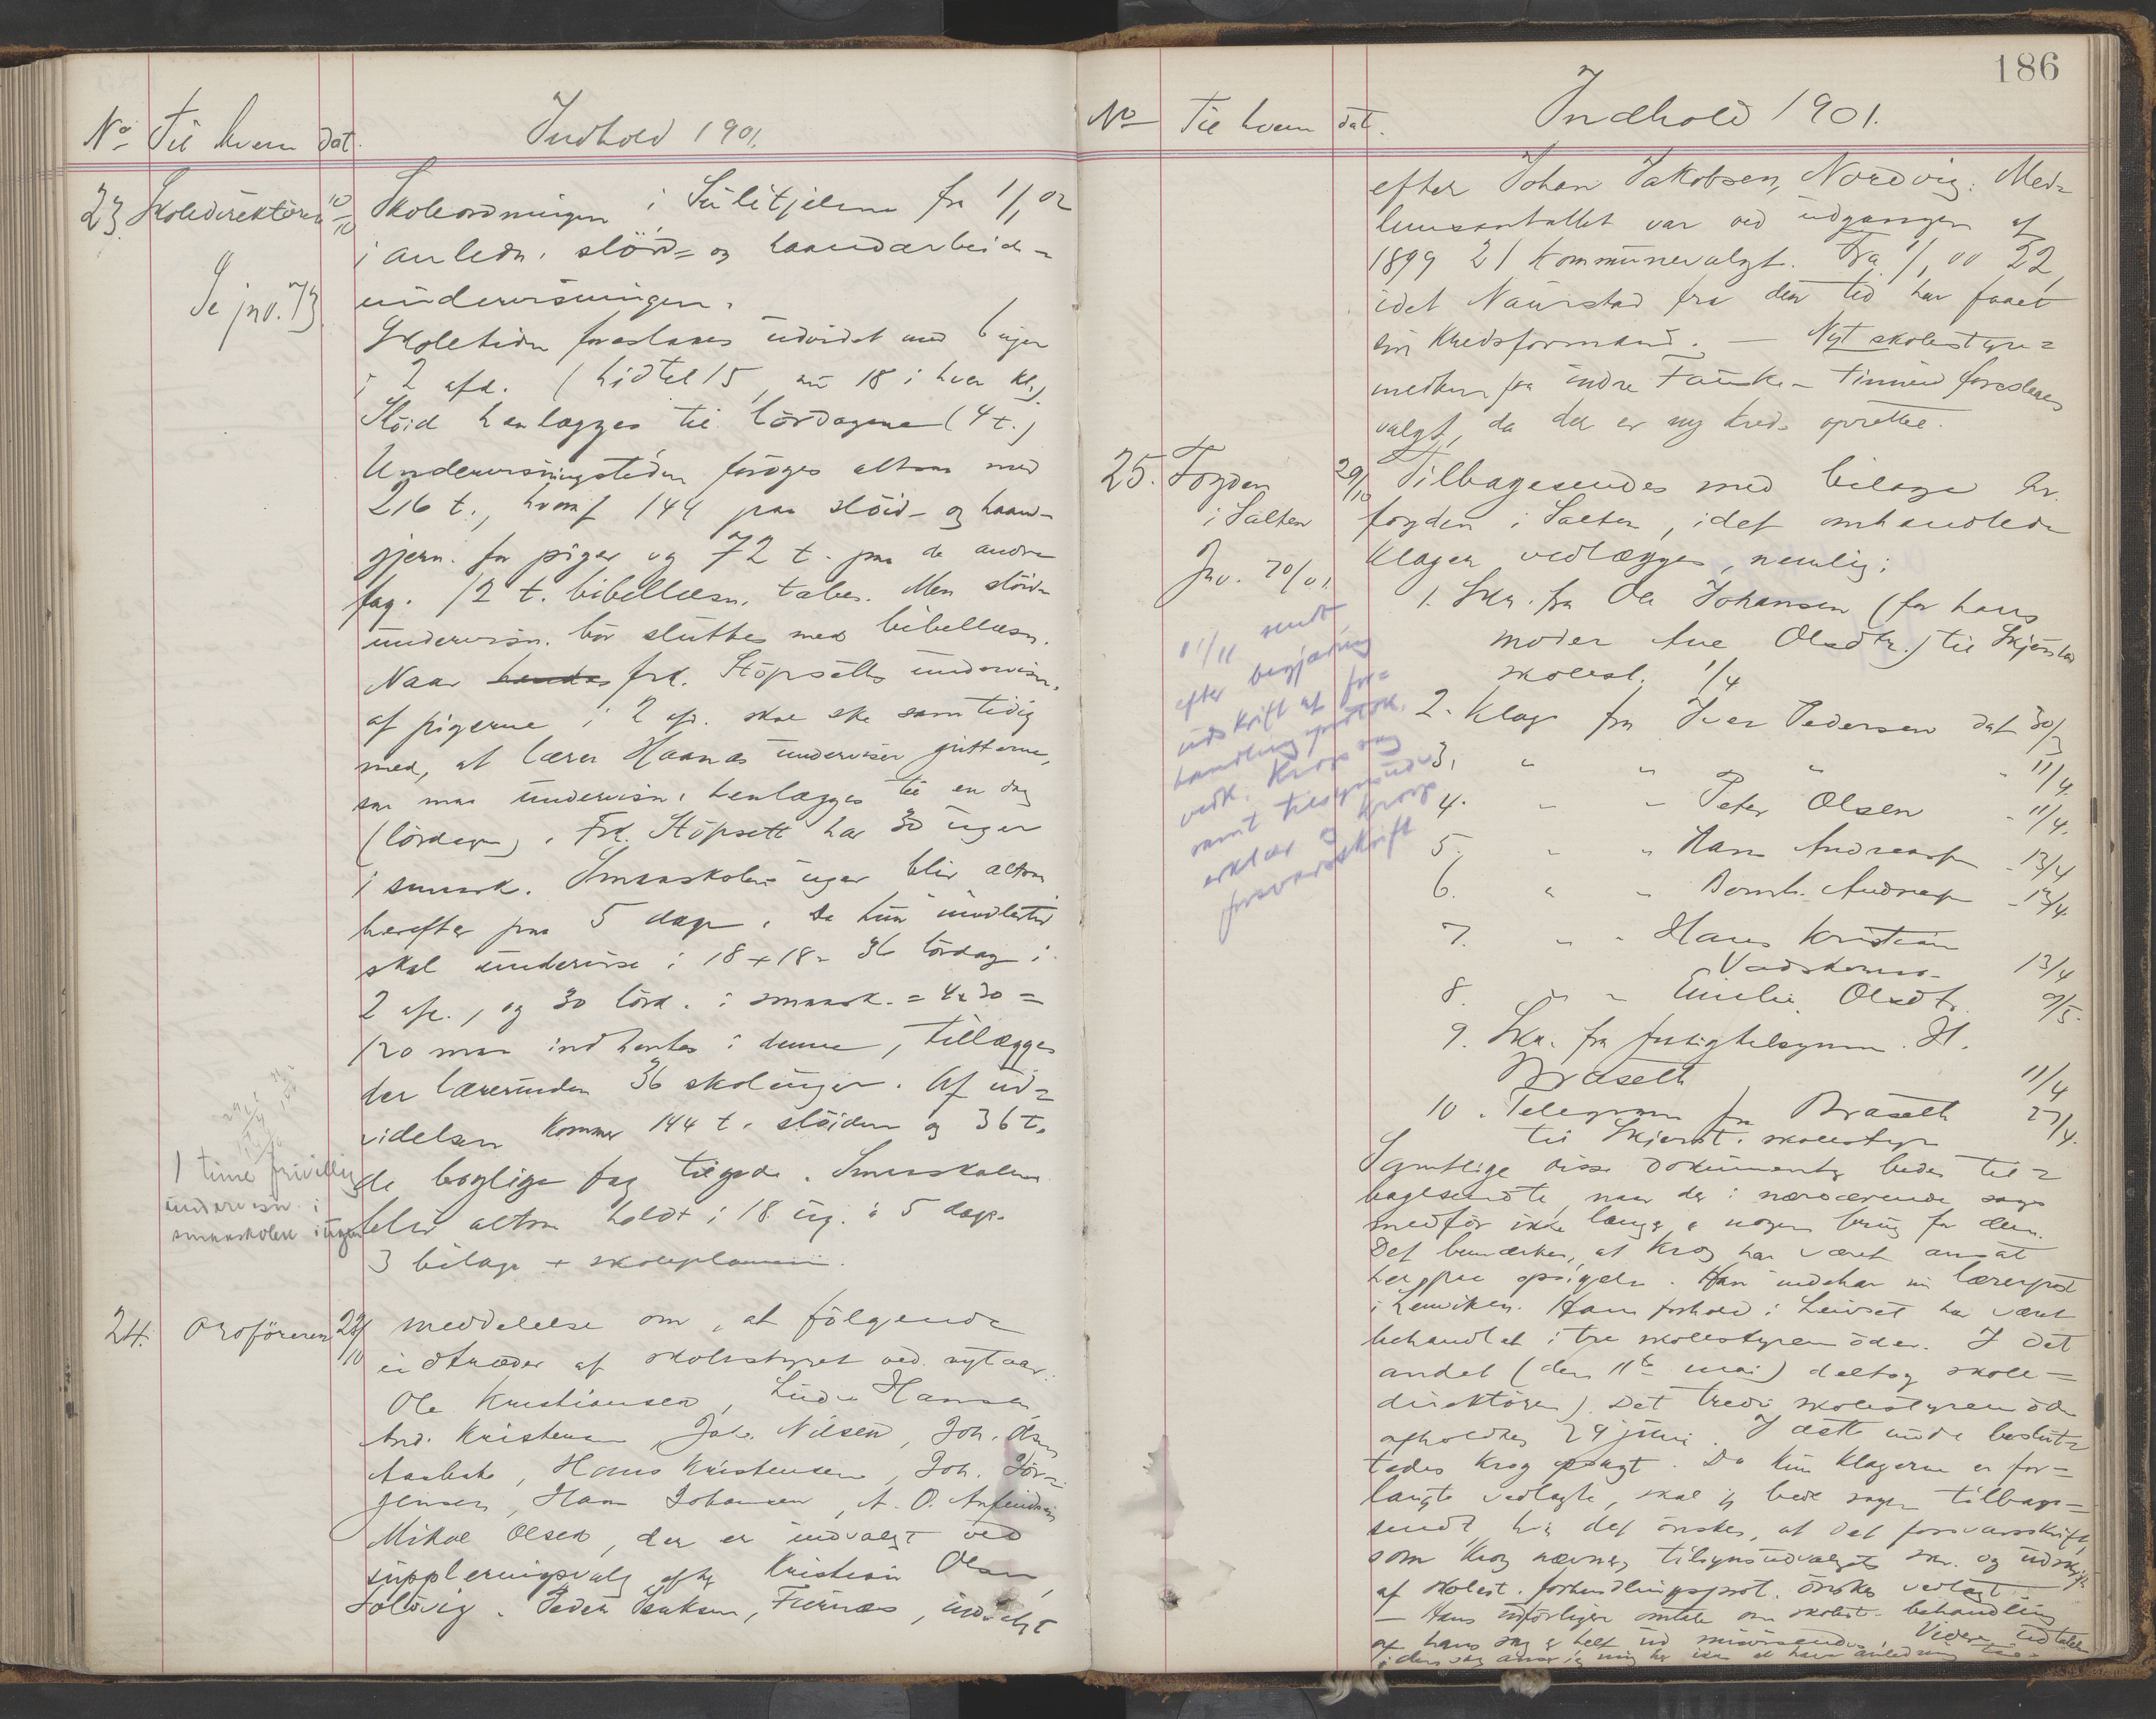 No Til hvem dat. Indhold 1901.
23. Skoledirektören 10/10 Skoleordningen i Sulitjelma fra 1/1 02
i anledn. slöid- og haandarbeids-
undervisningen.
Se jno. 73.
Skoletiden foreslaaes udvidet med 6 uger
i 2 afd. (hidtil 15, nu 18 i hver kl.)
Slöid henlægges til lördagene (4 t.)
Undervisningstiden foröges altsaa med
216 t., hvoraf 144 paa slöid- og haand-
gjern. for piger og 72 t. paa de andre
fag. 12 t. bibellæsn. tabes. Men slöid-
undervisn. bör sluttes med bibellæsn.
Naar frk. Stöpsetts undervisn.
af pigerne i 2 afd. skal ske samtidig
med, at lærer Haanæs underviser gutterne,
saa maa undervisn. henlægges til en dag
(lördagen). Frk. Stöpsett har 30 uger
i smaask. Smaaskolens uger blir altsaa
herefter paa 5 dage. Da hun imidlertid
skal undervise i 18 + 18 = 36 lördage i
2 afd., og 30 lörd. i smaask. = 4 x 30 =
120 maa indhentes i denne, tillægges
der lærerinden 36 skoleuger. Af ud-
videlsen kommer 144 t. slöiden og 36 t.
de boglige fag tilgode. Smaaskolen
blir altsaa holdt i 18 ug. à 5 dage.
3 bilage + skoleplanen.
1 time frivillig
undervisn. i
smaaskolen i ugen
24. Ordföreren 22/10 meddelelse om, at fölgende
udtræder af skolestyret ved nytaar:
Ole Kristiansen, Hansen,
And. Kristensen, Joh. Nilsen, Joh. Olsen
Hans Kristensen, Joh. Jör-
gensen, Hans Johansen, A. O. Anfindsen
Mikal Olsen, der er indvalgt ved
suppleringsvalg efter Kristian Olsen,
Solvig. Peder Isaksen, indvalgt
186
No Til hvem dat. Indhold 1901.
efter Johan Jakobsen, Nordvig. Med-
lemsantallet var ved udgangen af
1899 21 kommunevalgt. Fra 1/1 00 22,
idet Naurstad fra den tid har faaet
sin kredsformand. — Nyt skolestyre-
medlem fra indre Fauske - Finneid foreslaaes
valgt, da der er ny kreds oprettet.
25. Fogden 29/10 Tilbagesendes med bilage hr.
i Salten fogden i Salten, idet omhandlede
Jno. 70/01. klager vedlægges, nemlig:
1. Skr. fra Ole Johansen (for hans
moder Ane Olsdtr.) til Skjerstad
skolest. 1/4
2. Klage fra Iver Pedersen dat 30/3
3. " " " " 11/4
4. " " Peter Olsen - 11/4.
5. " " Hans Andreas - 13/4
6. " " Andreas - 13/4
7. " " Hans Kristian
13/4
8. " " Emilie Olsdt. 9/5.
9. Skr. fra H.
Braseth 11/4
10. Telegram fra Braseth 27/4.
til Skjerst. skolestyre
11/11 sendt
efter begjæring
udskrift af for-
handlingsprotok.
vedk. Krogs sag
samt tilsynsudv.
erklær. og Krogs
forsvarsskrift
Samtlige disse dokumenter bedes til-
bagesendte, naar de i nærværende sags
medför ikke længer er nogen brug for dem.
Det bemærkes, at Krog har været ansat
her paa opsigelse. Han indehar nu lærerpost
i Lenviken. Hans forhold i Leivset har været
behandlet i tre skolestyremöder. I det
andet (den 11te mai) deltog skole-
direktören). Det tredie skolestyremöde
afholdtes 29 juni. I dette möde beslut-
tedes Krog opsagt. Da kun klagerne er for-
langte vedlagte, skal jeg bede sagen tilbage-
sendt, hvis det önskes, at det forsvarsskrift,
som Krog nævner, tilsynsudvalgets skr. og udskrift
af skolest. forhandlingsprot. önskes vedlagt.
— Hans udförligere omtale om skolest. behandling
af hans sag er helt ud misvisende. Videre udtalelse
i denne sag anser jeg mig her ikke at have anledning til.